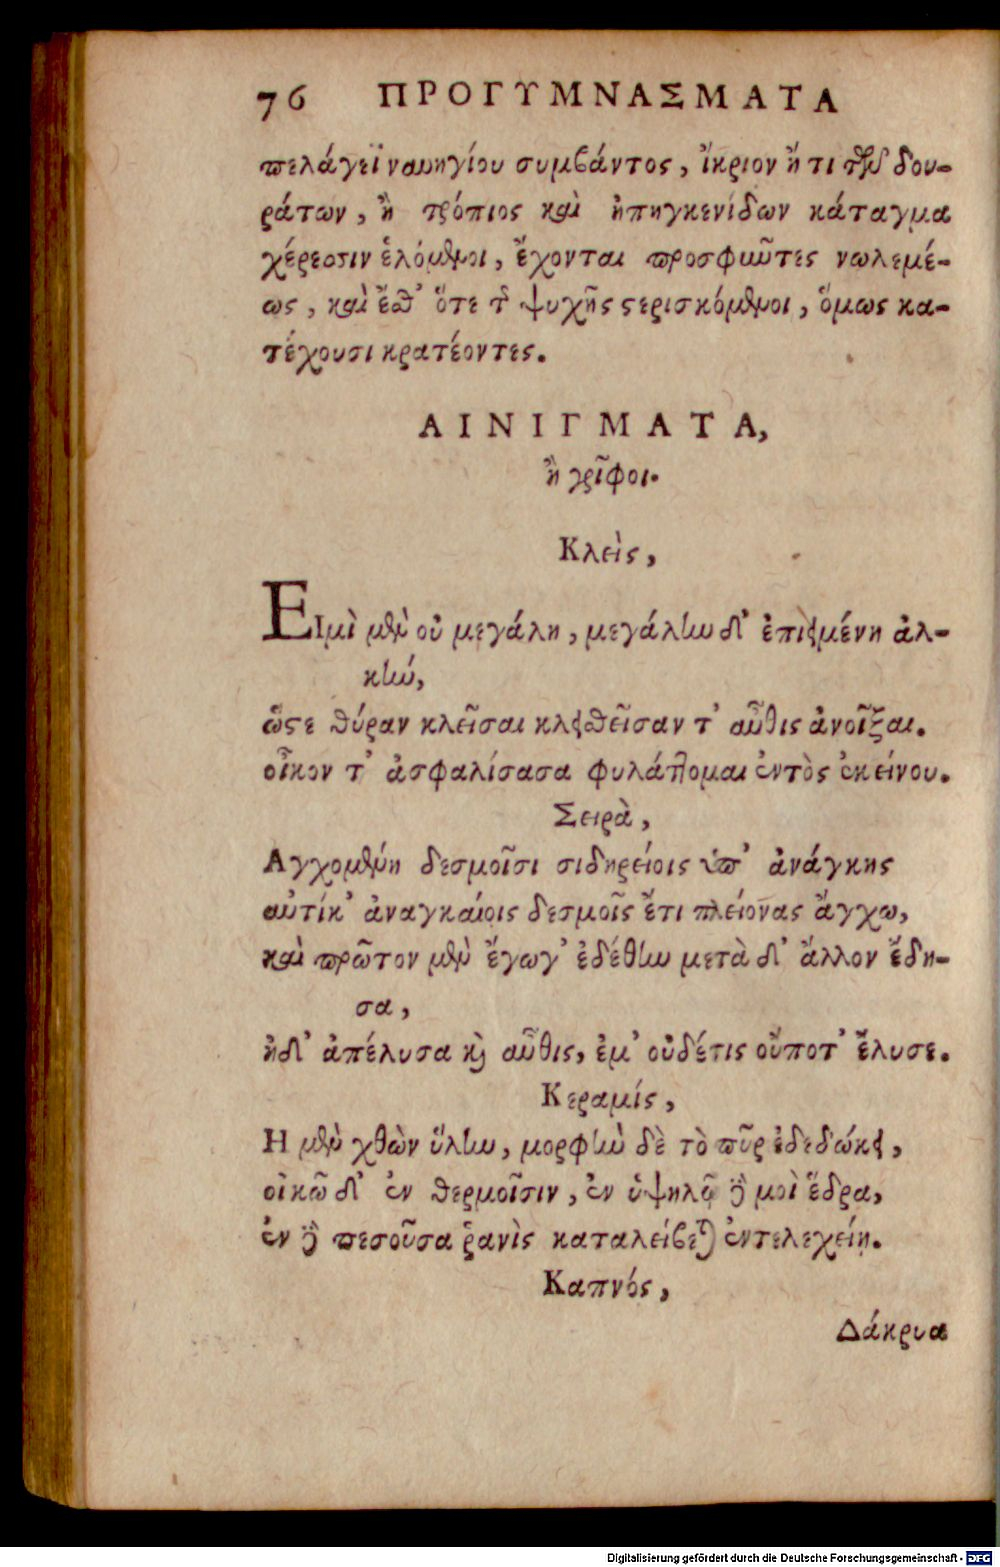 76 ΠΡΟΓΥΜΝΑΣΜΑΤΑ
πελάγεϊ ναυηγίου συμβάντος, ἴκριον ἤ τι τῶν δου-
ράτων, ἢ τρόπιος καὶ ἠπηγκενίδων κάταγμα
χέρεσσιν ἑλόμενοι, ἔχονται προσφυῶτες νωλεμέ-
ως, καὶ ἔσθ' ὅτε τῆς ψυχῆς στερισκόμενοι, ὅμως κα-
τέχουσι κρατέοντες.
ΑΙΝΙΓΜΑΤΑ,
ἢ γρῖφοι.
Κλεὶς,
ΕΙμὶ μὲν οὐ μεγάλη, μεγάλην δ' ἐπιειμένη ἀλ-
κὴν,
ὥστε θύραν κλεῖσαι κλειθεῖσαν τ' αὖθις ἀνοῖξαι.
οἶκον τ' ἀσφαλίσασα φυλάττομαι ἐντὸς ἐκείνου.
Σειρὰ,
Αγχομένη δεσμοῖσι σιδηρείοις ὑπ' ἀνάγκης
αὐτίκ' ἀναγκαίοις δεσμοῖς ἔτι πλείονας ἄγχω,
καὶ πρῶτον μὲν ἔγωγ' ἐδέθην μετὰ δ' ἄλλον ἔδη-
σα,
ἠδ' ἀπέλυσα καὶ αὖθις, ἐμ' οὐδέτις οὔποτ' ἔλυσε.
Κεραμίς,
Η μὲν χθὼν ὕλην, μορφὴν δὲ τὸ πῦρ ἐδεδώκει,
οἰκῶ δ' ἐν θερμοῖσιν, ἐν ὑψηλῷ γδ μοὶ ἕδρα,
ἐν γδ πεσοῦσα ῥανὶς καταλείβεται ἐντελεχείῃ.
Καπνός,
Δάκρυα
Digitalisierung gefördert durch die Deutsche Forschungsgemeinschaft - DFG